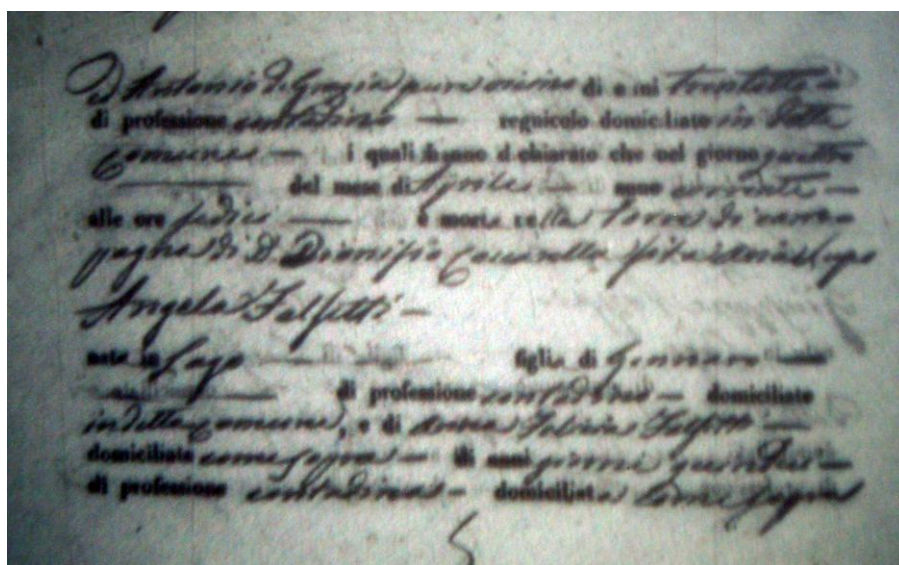 Ed Antonio di Grazia pure vicino di anni trentotto
di professione contadino — regnicolo domiciliato in detta
Comune — i quali hanno dichiarato che nel giorno quattro
— del mese di Aprile — anno corrente —
alle ore sedici — è morta nella Torre di cam-
pagna di D. Dionisio sita in
Angela Falsetti —
nata in Lago — figlia di Gennaro —
— di professione contadino — domiciliato
in detta Comune, e di Anna Falsetti —
domiciliata come sopra — di anni giorni quindici —
di professione contadina — domiciliata come sopra